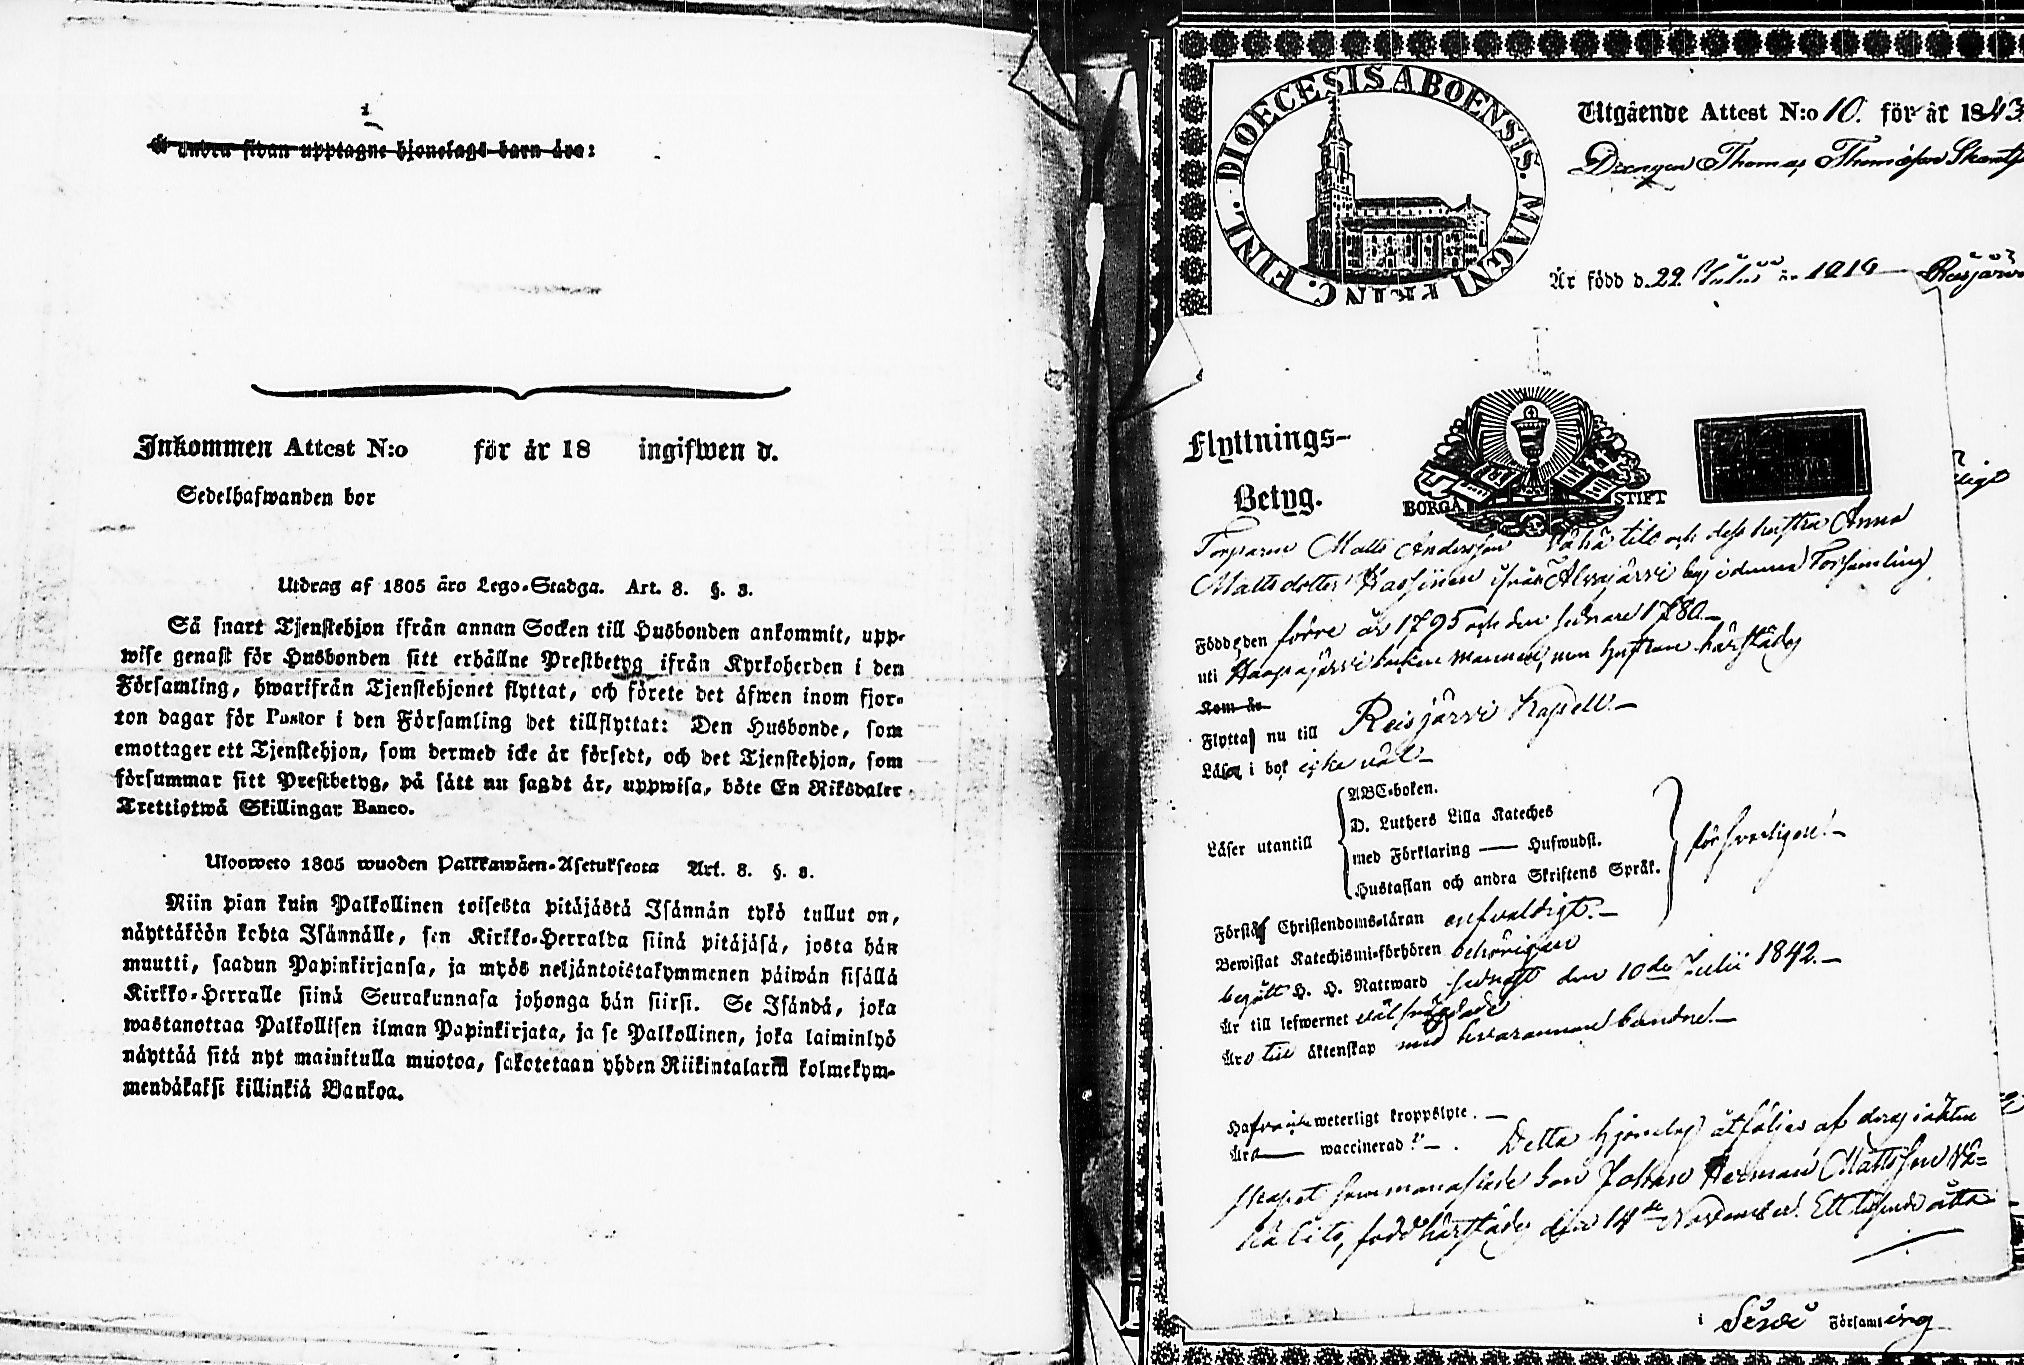 Å andra sidan upptagne hjonelags barn äro:
Inkommen Attest N:o för år 18 ingifwen d.
Sedelhafwanden bor
Utdrag af 1805 års Lego-Stadga. Art. 8. §. 3.
Så snart Tjenstehjon ifrån annan Socken till Husbonden ankommit, upp-
wise genast för Husbonden sitt erhållne Prestbetyg ifrån Kyrkoherden i den
Församling, hwarifrån Tjenstehjonet flyttat, och förete det äfwen inom fjor-
ton dagar för Pastor i den Församling det tillflyttat: Den Husbonde, som
emottager ett Tjenstehjon, som dermed icke är försedt, och det Tjenstehjon, som
försummar sitt Prestbetyg, på sätt nu sagdt är, uppwisa, böte En Riksdaler
Trettiotwå Skillingar Banco.
Ulosweto 1805 wuoden Palkkawäen-Asetuksesta Art. 8. §. 3.
Niin pian kuin Palkollinen toisesta pitäjästä Isännän tykö tullut on,
näyttäköön kohta Isännälle, sen Kirkko-Herralda siinä pitäjäsä, josta hän
muutti, saadun Papinkirjansa, ja myös neljäntoistakymmenen päiwän sisällä
Kirkko-Herralle siinä Seurakunnasa johonga hän siirsi. Se Isändä, joka
wastanottaa Palkollisen ilman Papinkirjata, ja se Palkollinen, joka laiminlyö
näyttää sitä nyt mainitulla muotoa, sakotetaan yhden Riikintalarin kolmekym-
mendäkaksi killinkiä Bankoa.
DIOECESIS ABOENSIS. MAGNI PRINC. FINL.
Utgående Attest N:o 10. för år 1843
Drengen Thomas Thomasson
Är född d. 22 Julii år 1819 Reisjärvi
Flyttnings-
Betyg.
BORGÅ STIFT
Torparen Matts Andersson Vähätilo och dess hustru Anna
Mattsdotter Kassinen ifrån Alvajärvi by i denna Församling
Födde den förre år 1795 och den sednare 1780.
uti Haapajärvi socken mannen, men hustrun härstädes
Kom år
Flytta nu till Reisjärvi Kapell.
Läsa i bok icke väl
Läser utantill
ABC-boken.
D. Luthers Lilla Kateches
med Förklaring — Hufwudst.
Hustaflan och andra Skriftens Språk.
försvarligen.
Förstå Christendoms-läran enfaldigt.
Bewistat Katechismi-förhören behörigen
begått H. H. Nattward sednast den 10de Julii 1842.
Är till lefwernet väl frägdade
Äro till äktenskap med hvarannan bundne.
Hafva weterligt kroppslyte.
Äro waccinerad
Detta hjonelag åtföljes af deras i äkten
skapet sammanaflade son Johan Herman Mattsson Vä=
hätilo, född härstädes den 14de November Ett tusende åtta
i Sievi Församling